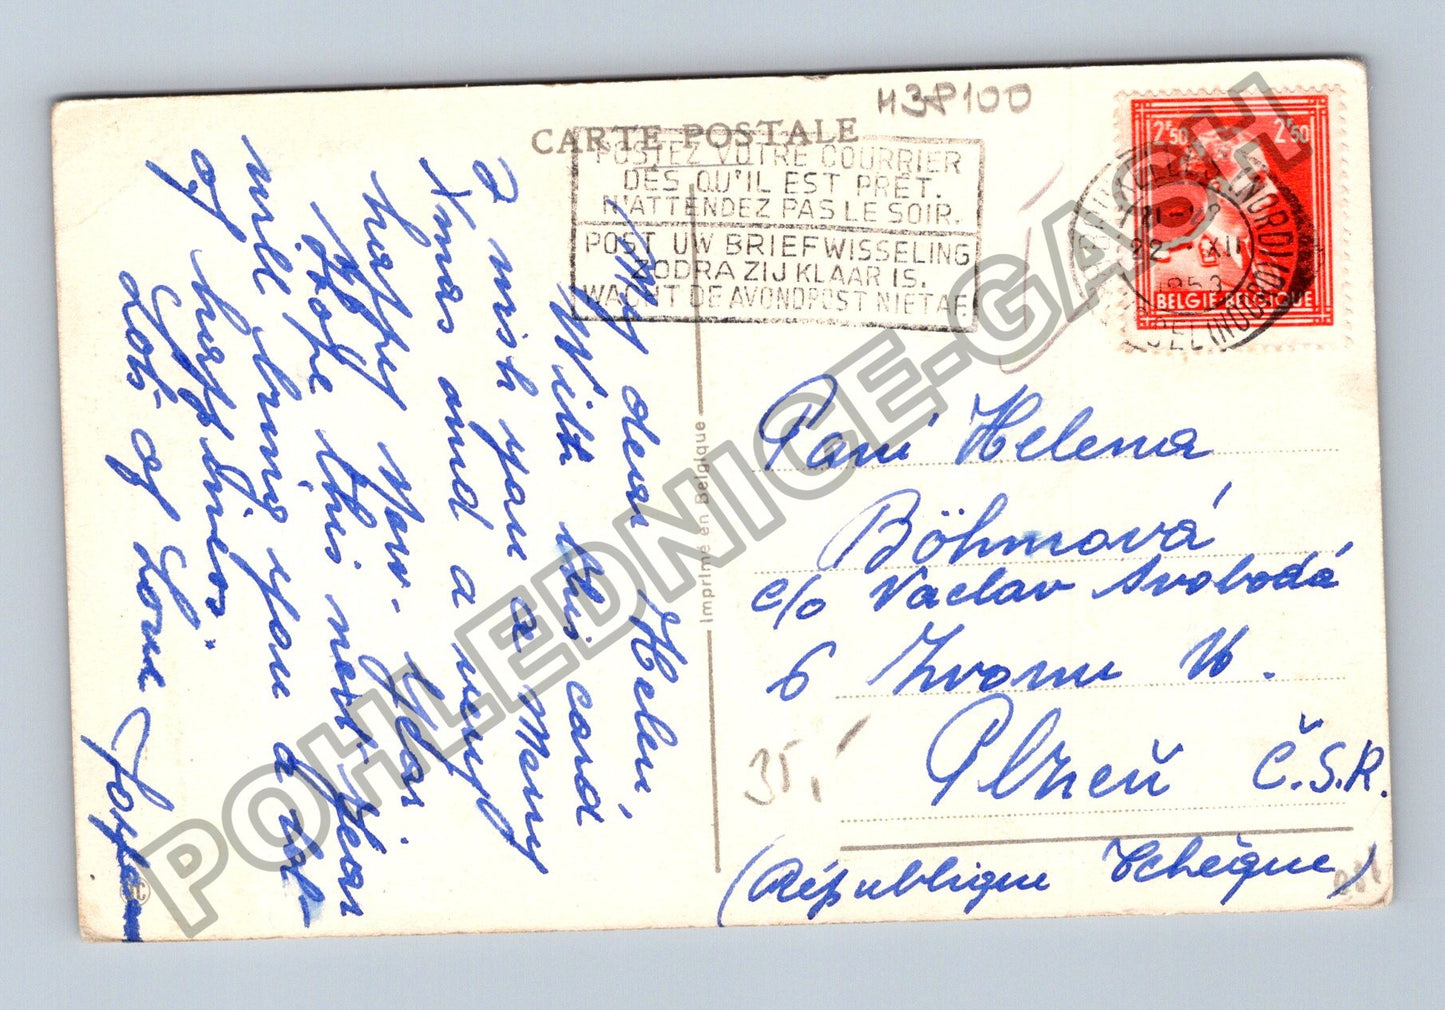 H38100
CARTE POSTALE
POSTEZ VOTRE COURRIER
DES QU'IL EST PRÊT.
N'ATTENDEZ PAS LE SOIR.
POST UW BRIEFWISSELING
ZODRA ZIJ KLAAR IS.
WACHT DE AVONDPOST NIET AF.
2F50 2F50
BELGIE-BELGIQUE
(NORD)
21-22
22 XII
1953
My dear Helen,
With this card
I wish you a Merry
Xmas and a very
happy New-Year.
Hope this next year
will bring you a real
of happiness.
Lots of Love
Imprimé en Belgique
Paní Helena
Böhmová
c/o Vaclav Svobodá
6 Zvonu 16.
Plzeň Č.S.R.
(République Tchèque)
35,-
POHLEDNICE-GASCH